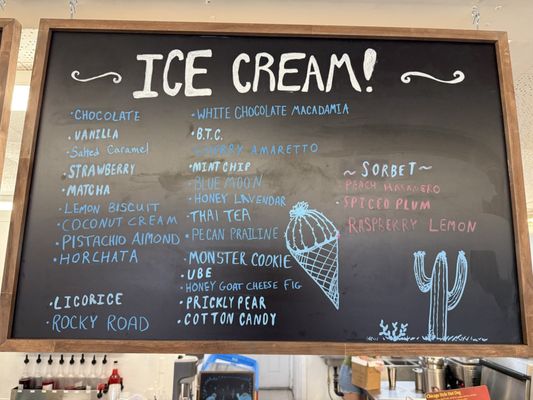 ICE CREAM!
CHOCOLATE
VANILLA
Salted Caramel
STRAWBERRY
MATCHA
LEMON BISCUIT
COCONUT CREAM
PISTACHIO ALMOND
HORCHATA
LICORICE
ROCKY ROAD
WHITE CHOCOLATE MACADAMIA
B.T.C.
CHERRY AMARETTO
MINT CHIP
BLUE MOON
HONEY LAVENDAR
THAI TEA
PECAN PRAILINE
MONSTER COOKIE
UBE
HONEY GOAT CHEESE FIG
PRICKLY PEAR
COTTON CANDY
~ SORBET ~
PEACH HABANERO
SPICED PLUM
RASPBERRY LEMON
Chicago Style Hot Dog